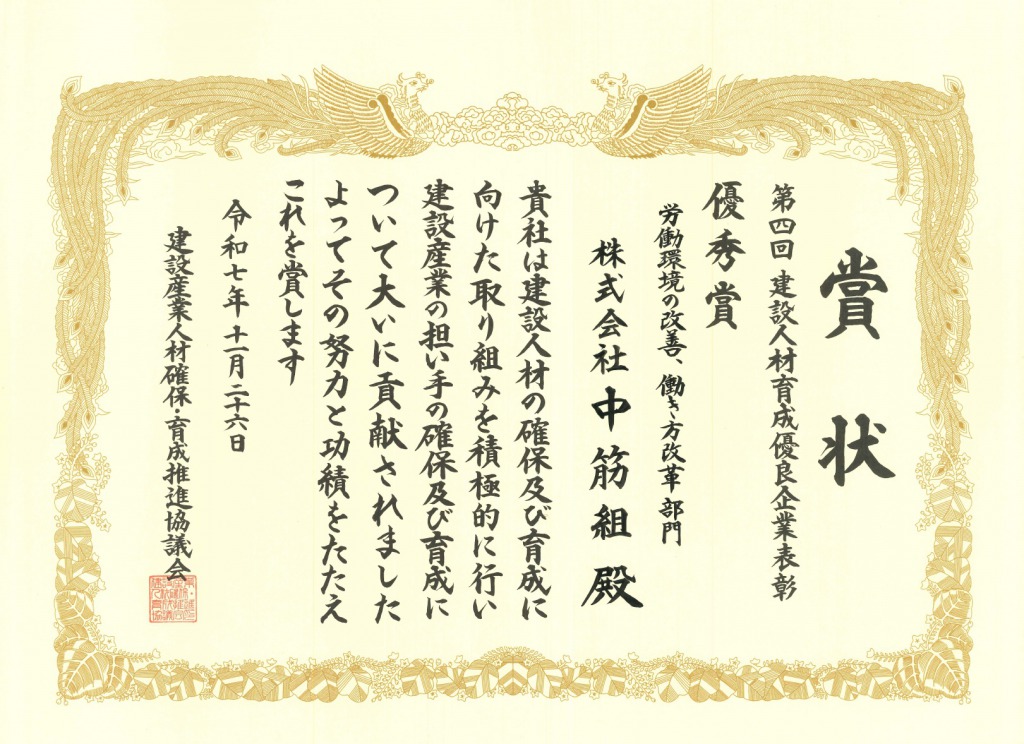 賞状
第四回 建設人材育成優良企業表彰
優秀賞
労働環境の改善、働き方改革部門
株式会社中筋組殿
貴社は建設人材の確保及び育成に
向けた取り組みを積極的に行い
建設産業の担い手の確保及び育成に
ついて大いに貢献されました
よってその努力と功績をたたえ
これを賞します
令和七年十一月二十六日
建設産業人材確保・育成推進協議会